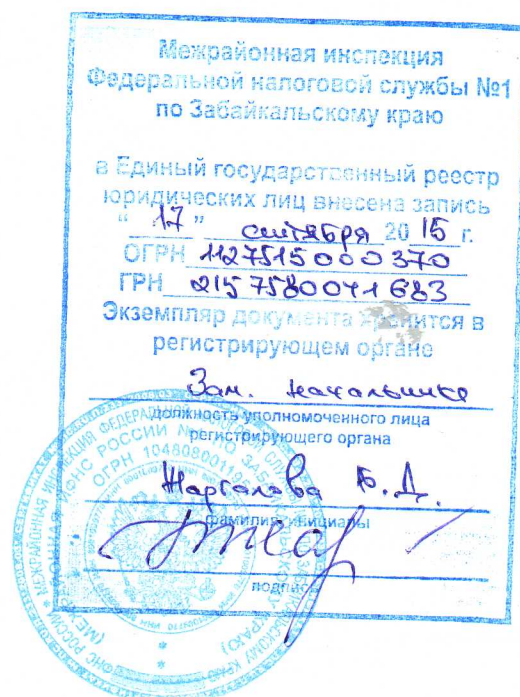 Межрайонная инспекция
Федеральной налоговой службы №1
по Забайкальскому краю
в Единый государственный реестр
юридических лиц внесена запись
“ 17 ” сентября 20 15 г.
ОГРН 1127515000370
ГРН 2157580041683
Экземпляр документа хранится в
регистрирующем органе
Зам. начальника
должность уполномоченного лица
регистрирующего органа
Жаргалова Б.Д.
фамилия, инициалы
подпись